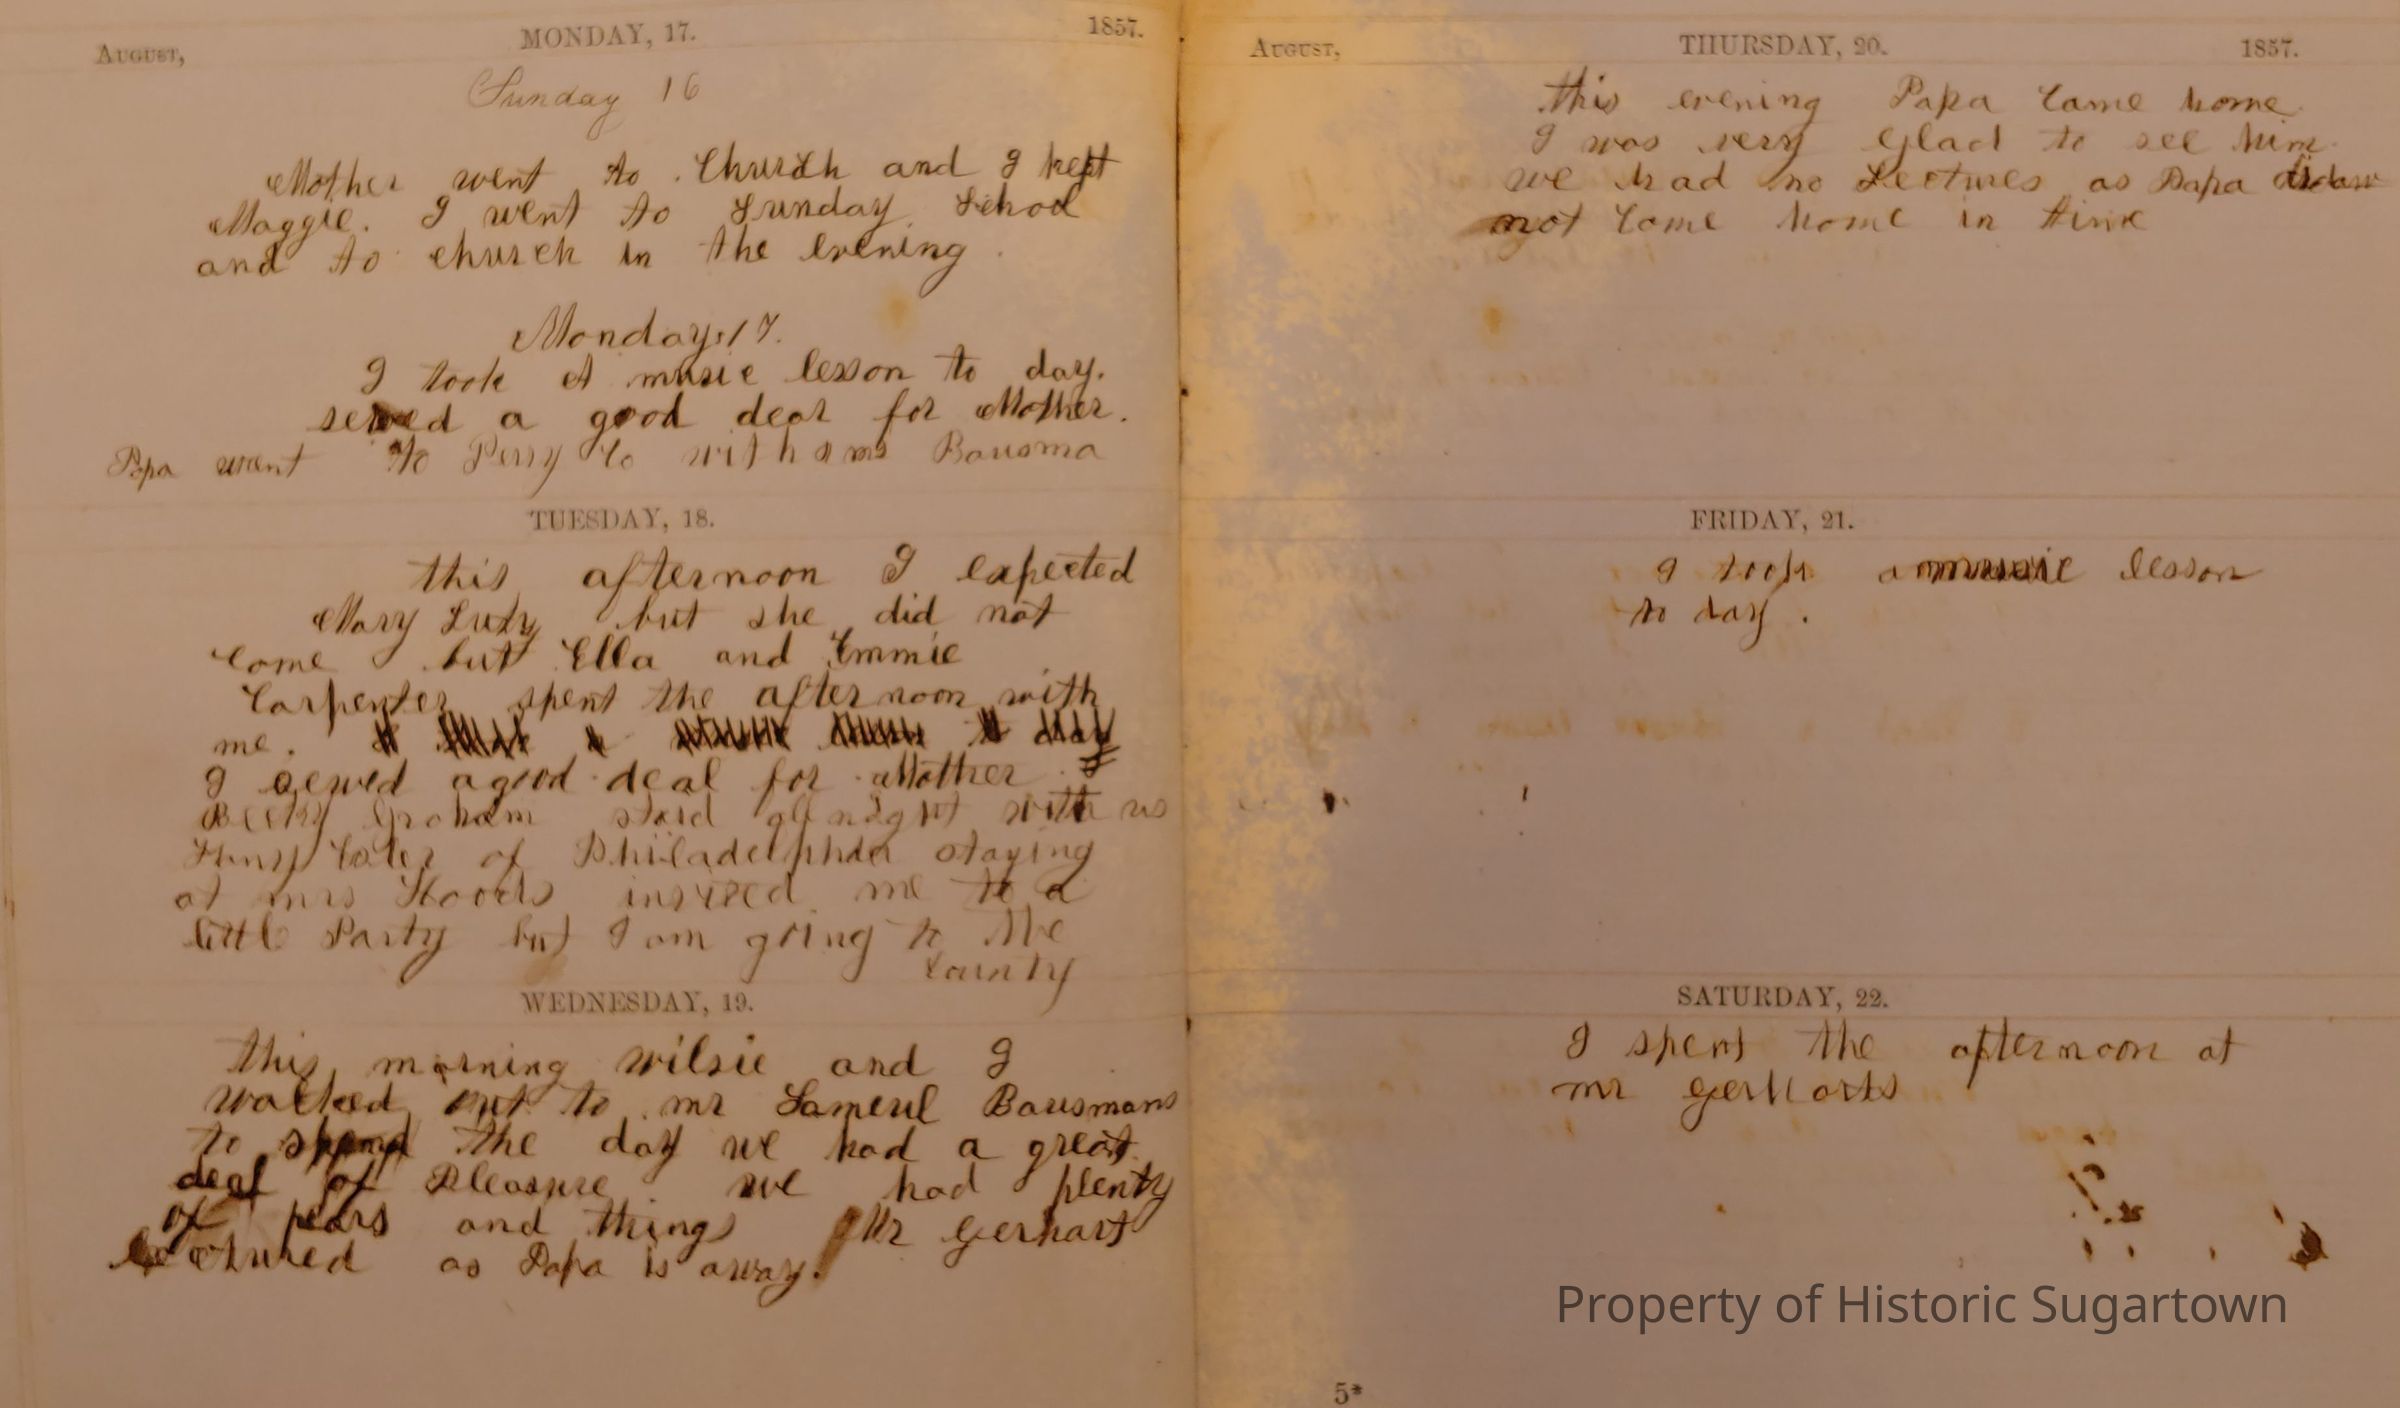 August, MONDAY, 17. 1857.
Sunday 16
Mother went to Church and I kept
Maggie. I went to Sunday School
and to church in the evening
Monday 17.
I took A music lesson to day.
sewed a good deal for Mother.
Papa went to Perry Co with Bausma
TUESDAY, 18.
this afternoon I expected
Mary but she did not
Come but Ella and Emmie
Carpenter spent the afternoon with
me.
I sewed a good deal for Mother
Becky Graham staid all night with us
of Philadelphia staying
at mrs me to a
little Party but I am going to the
County
WEDNESDAY, 19.
this morning wilsie and I
walked out to mr Bausmans
to spend the day we had a great
deal of Pleasure. we had plenty
of pears and things Mr Gerhart
Lectured as Papa is away.
August, THURSDAY, 20. 1857.
this evening Papa Came home
I was very Glad to see him.
we had no Lectures as Papa
not Come home in time
FRIDAY, 21.
I took a music lesson
to day.
SATURDAY, 22.
I spent the afternoon at
mr Gerharts
Property of Historic Sugartown
5*